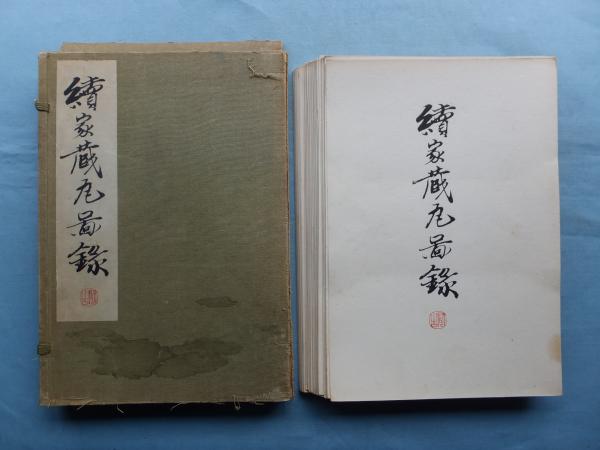 續家蔵瓦図録
續家蔵瓦図録